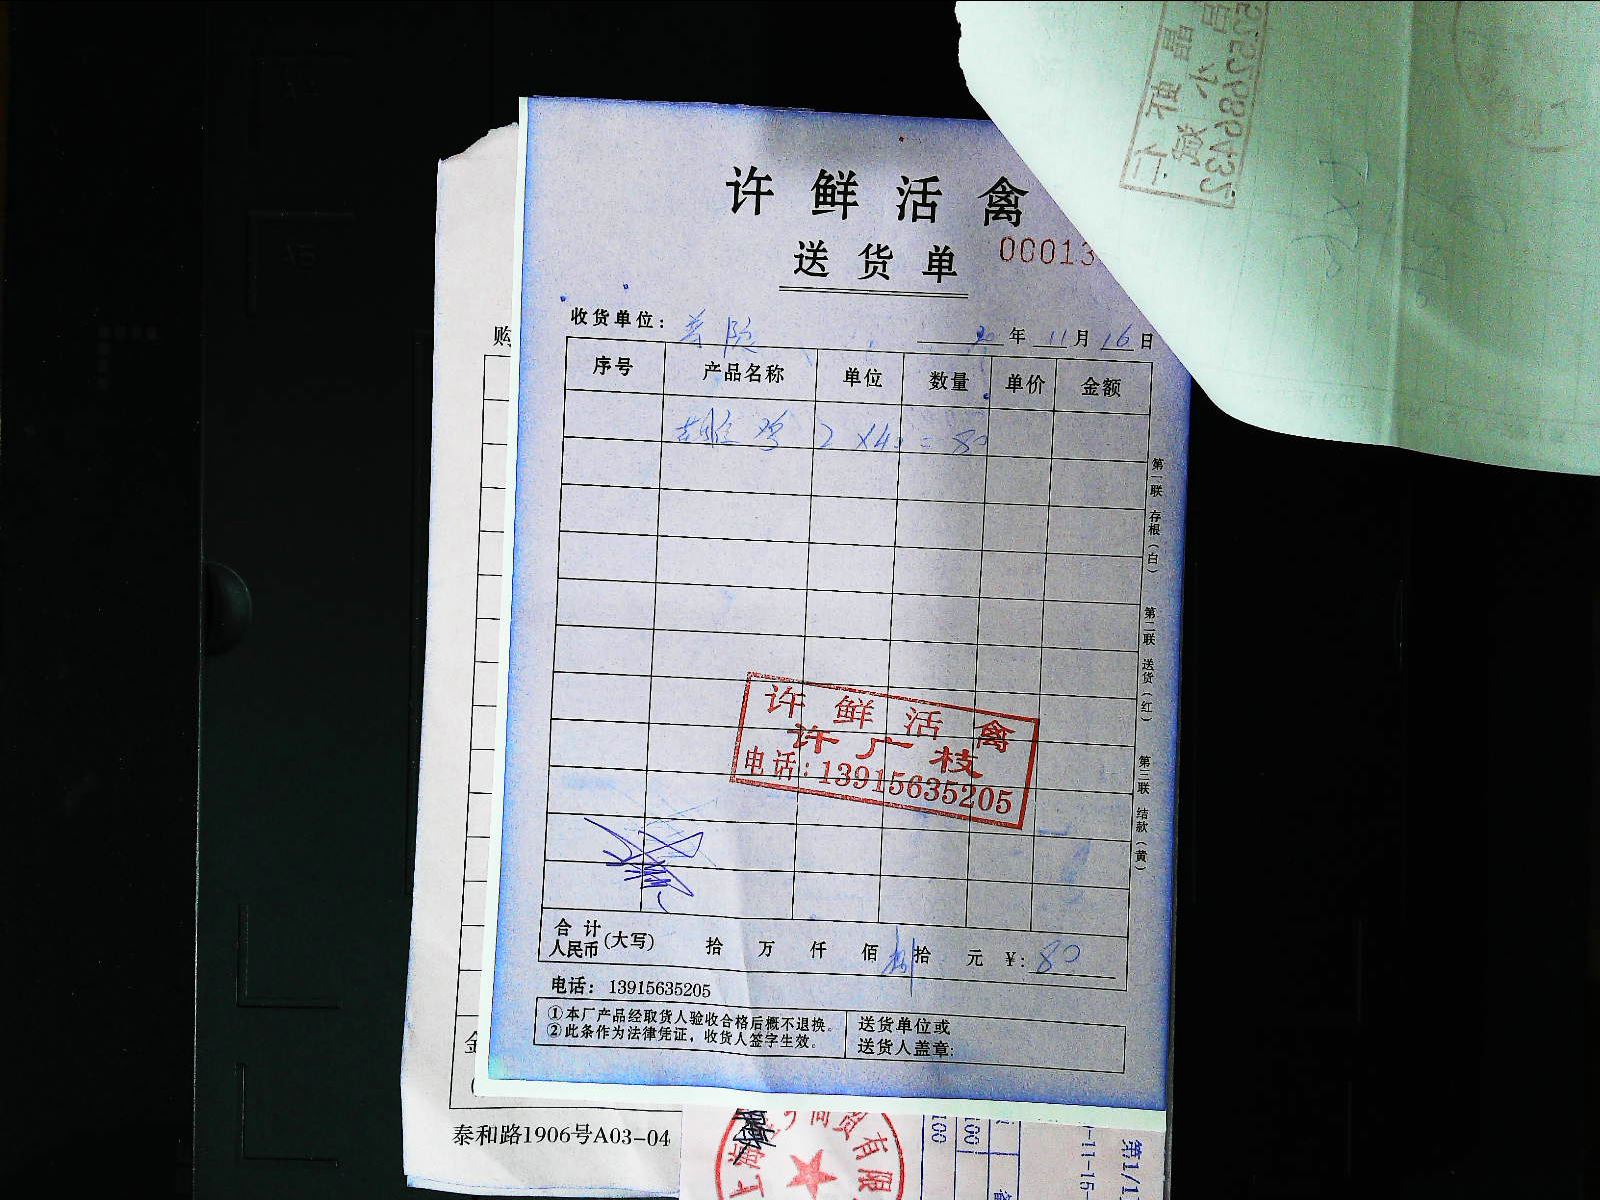 许鲜活禽
送货单
00013
收货单位：
20年11月16日
序号 产品名称 单位 数量 单价 金额
鸡 2 X40=80
第一联 存根（白）
第二联 送货（红）
第三联 结款（黄）
许鲜活禽
许广枝
电话：13915635205
合计人民币(大写) 拾 万 仟 佰 捌拾 元 ¥：80
电话：13915635205
①本厂产品经取货人验收合格后概不退换。
②此条作为法律凭证，收货人签字生效。
送货单位或
送货人盖章：
购
金
泰和路1906号A03-04
上海
商贸有限
第1/1
-11-15-
100
100